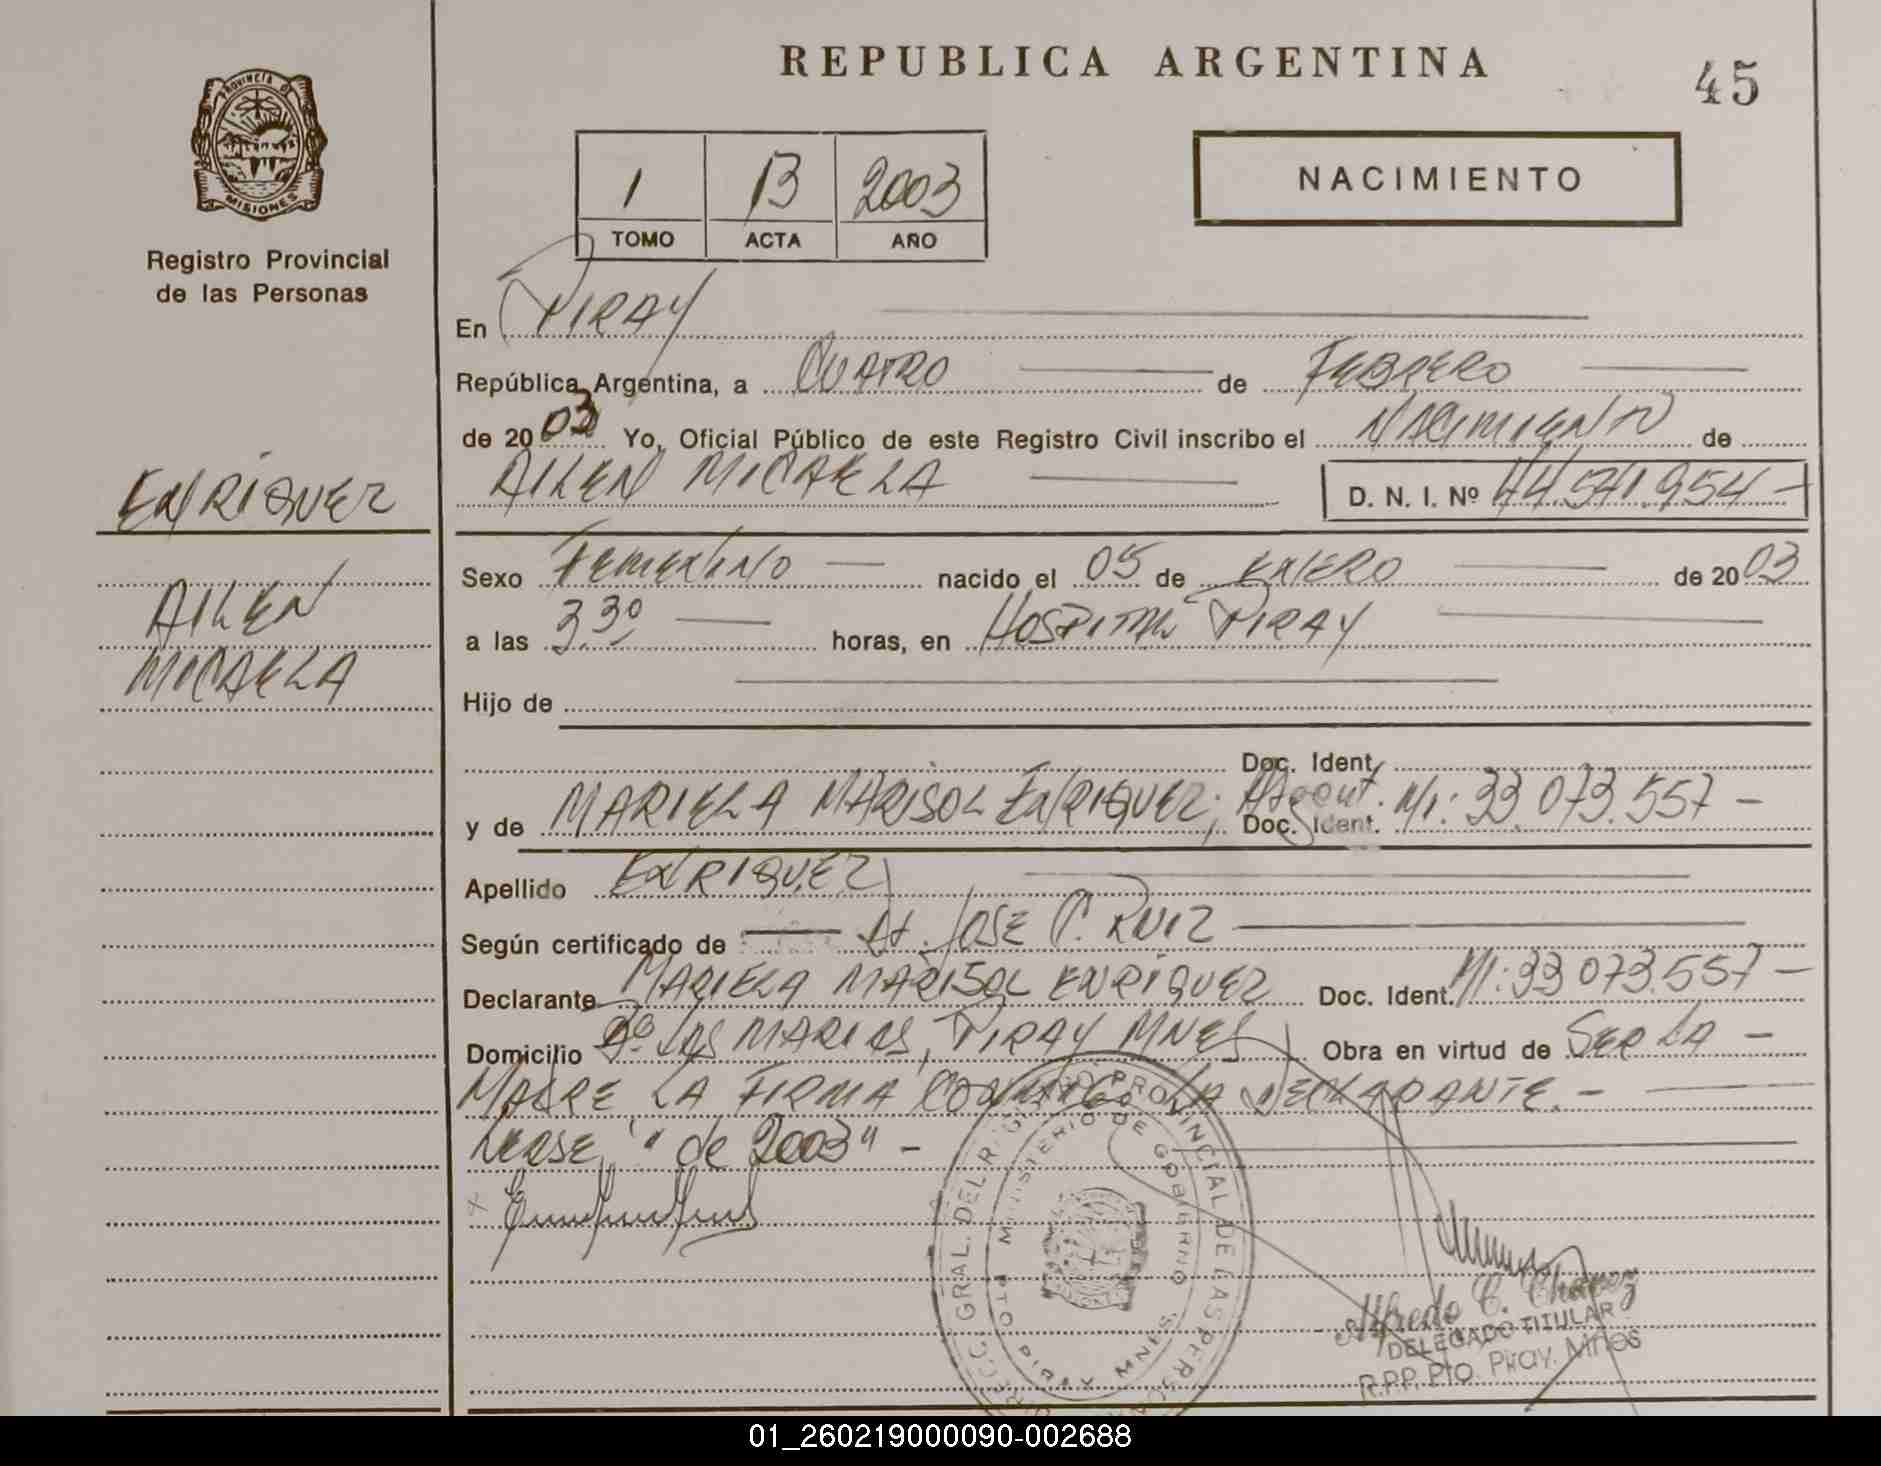 REPUBLICA ARGENTINA
45
PROVINCIA DE
MISIONES
Registro Provincial
de las Personas
1 13 2003
TOMO ACTA AÑO
NACIMIENTO
En PIRAY
República Argentina, a CUATRO de FEBRERO
de 2003 Yo, Oficial Público de este Registro Civil inscribo el NACIMIENTO de
AILEN MICAELA D. N. I. Nº 44.541.954 -
ENRIQUEZ
AILEN
MICAELA
Sexo FEMENINO nacido el 05 de ENERO de 2003
a las 3.30 horas, en HOSPITAL PIRAY
Hijo de
Doc. Ident.
y de MARIELA MARISOL ENRIQUEZ; Argent. Doc. Ident. MI: 33.073.557 -
Apellido ENRIQUEZ
Según certificado de JOSE C. RUIZ
Declarante MARIELA MARISOL ENRIQUEZ Doc. Ident. MI: 33 073.557 -
Domicilio Bº LAS MARIAS, PIRAY MNES Obra en virtud de SER LA -
MADRE LA FIRMA CONMIGO LA DECLARANTE. -
LEASE "de 2003" -
GRAL. DEL REGISTRO PROVINCIAL DE LAS PERSONAS
MINISTERIO DE GOBIERNO
PTO PIRAY MNES
Alfredo C. Chavez
DELEGADO TITULAR
R.P.P. Pto. Piray. Mnes
01_260219000090-002688